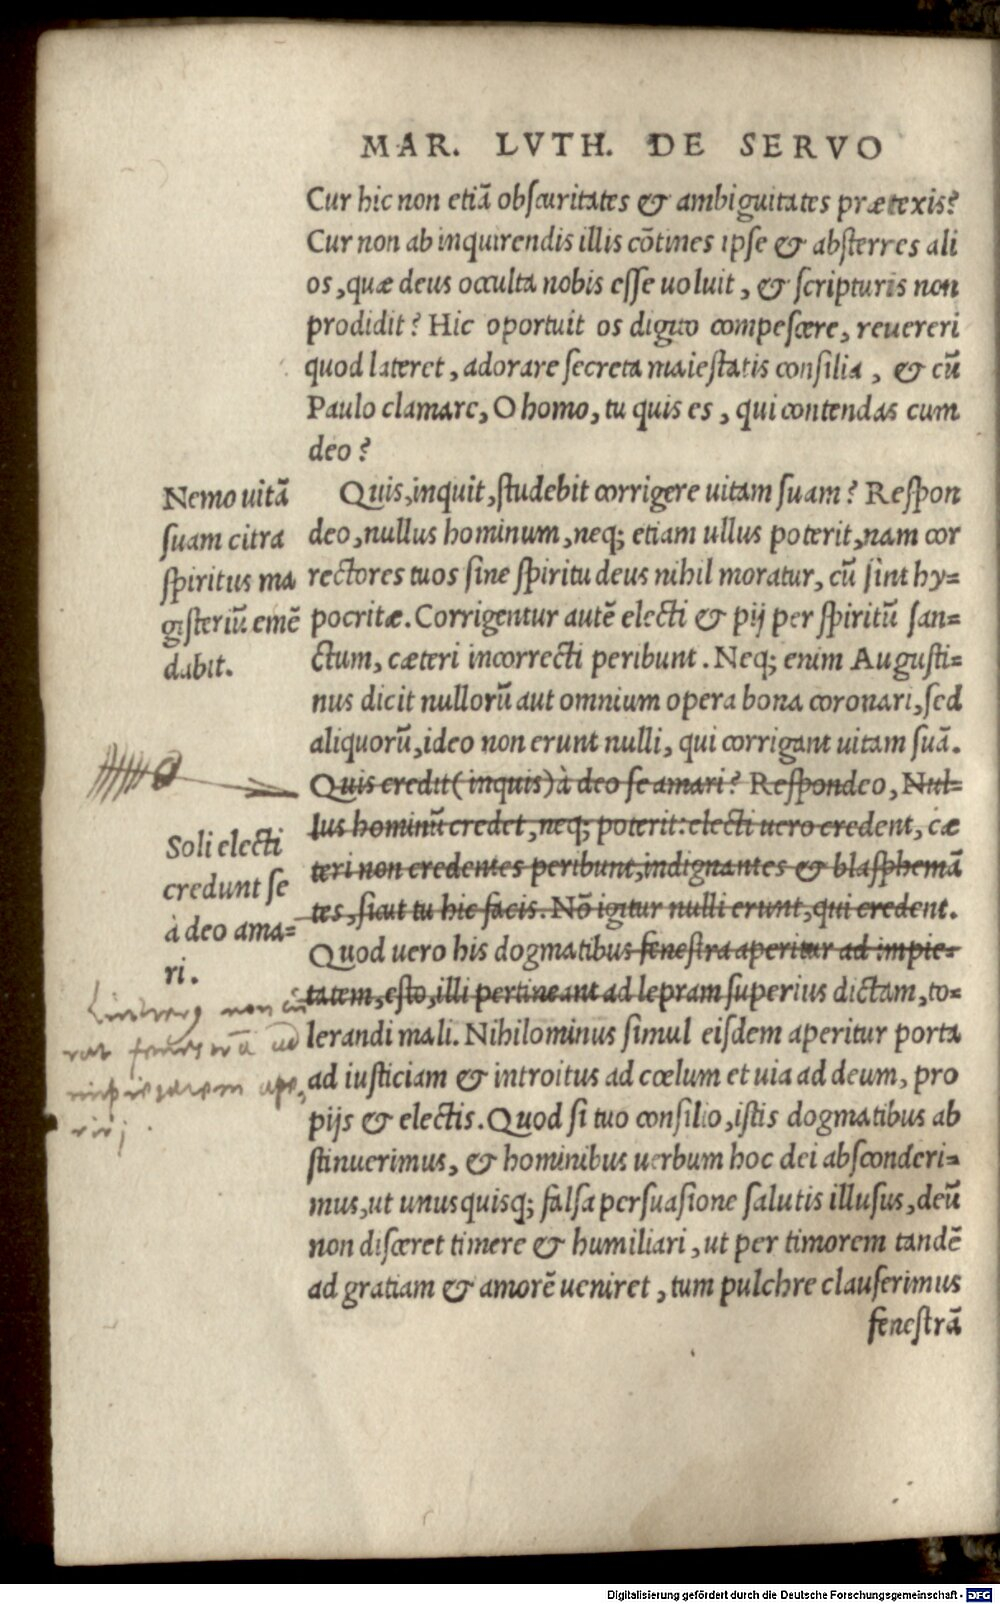 MAR. LVTH. DE SERVO
Cur hic non etiã obscuritates & ambiguitates prætexis?
Cur non ab inquirendis illis cõtines ipse & absterres ali
os, quæ deus occulta nobis esse uoluit, & scripturis non
prodidit? Hic oportuit os digito compescere, reuereri
quod lateret, adorare secreta maiestatis consilia, & cũ
Paulo clamare, O homo, tu quis es, qui contendas cum
deo?
Nemo uitã
suam citra
spiritus ma
gisteriũ emẽ
dabit.
Quis, inquit, studebit corrigere uitam suam? Respon
deo, nullus hominum, neq; etiam ullus poterit, nam cor
rectores tuos sine spiritu deus nihil moratur, cũ sint hy=
pocritæ. Corrigentur autẽ electi & pij per spiritũ san=
ctum, cæteri incorrecti peribunt. Neq; enim Augusti=
nus dicit nullorũ aut omnium opera bona coronari, sed
aliquorũ, ideo non erunt nulli, qui corrigant uitam suã.
Quis credit (inquis) à deo se amari? Respondeo, Nul=
lus hominũ credet, neq; poterit: electi uero credent, cæ
teri non credentes peribunt, indignantes & blasphemã
tes, sicut tu hic facis. Nõ igitur nulli erunt, qui credent.
Soli electi
credunt se
à deo ama=
ri.
Quod uero his dogmatibus fenestra aperitur ad impie=
tatem, esto, illi pertineant ad lepram superius dictam, to=
lerandi mali. Nihilominus simul eisdem aperitur porta
ad iusticiam & introitus ad cœlum et uia ad deum, pro
pijs & electis. Quod si tuo consilio, istis dogmatibus ab
stinuerimus, & hominibus uerbum hoc dei absconderi=
mus, ut unusquisq; falsa persuasione salutis illusus, deũ
non disceret timere & humiliari, ut per timorem tandẽ
ad gratiam & amorẽ ueniret, tum pulchre clauserimus
fenestrã
non cu
rat fenestrã ad
impietatem ape
riri
Digitalisierung gefördert durch die Deutsche Forschungsgemeinschaft - DFG